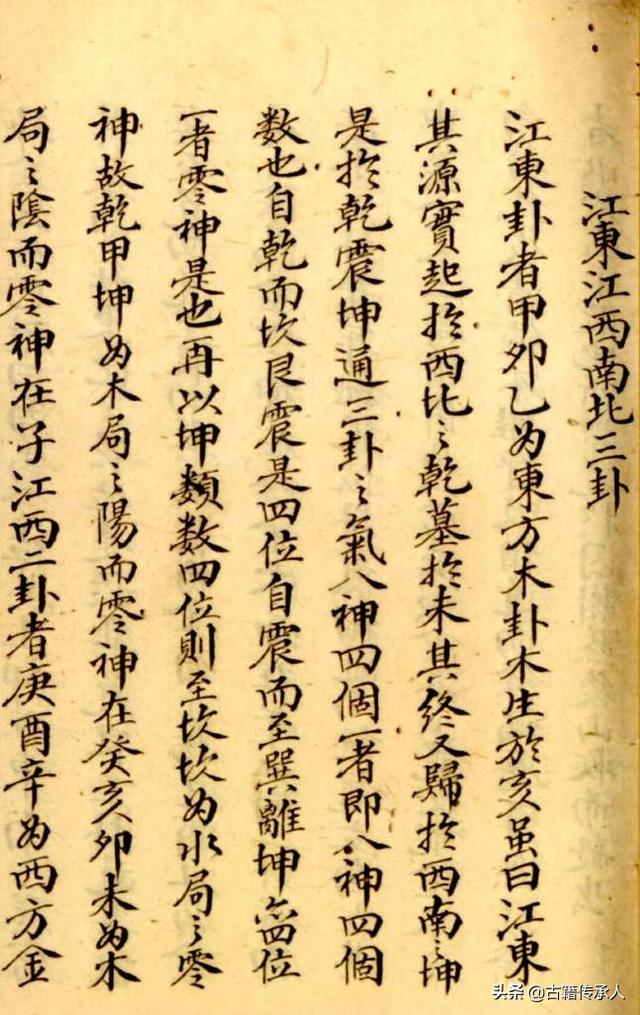 江東江西南北三卦
江東卦者甲卯乙为東方木卦木生於亥虽曰江東
其源實起扵西北之乾墓扵未其终又歸扵西南之坤
是扵乾震坤通三卦之氣八神四個一者即八神四個
数也自乾而坎艮震是四位自震而至巽離坤四位
一者零神是也再以坤類数四位則至坎坎为水局之零
神故乾甲坤为木局之陽而零神在癸亥卯未为木
局之陰而零神在子江西二卦者庚酉辛为西方金
头条 @古籍传承人